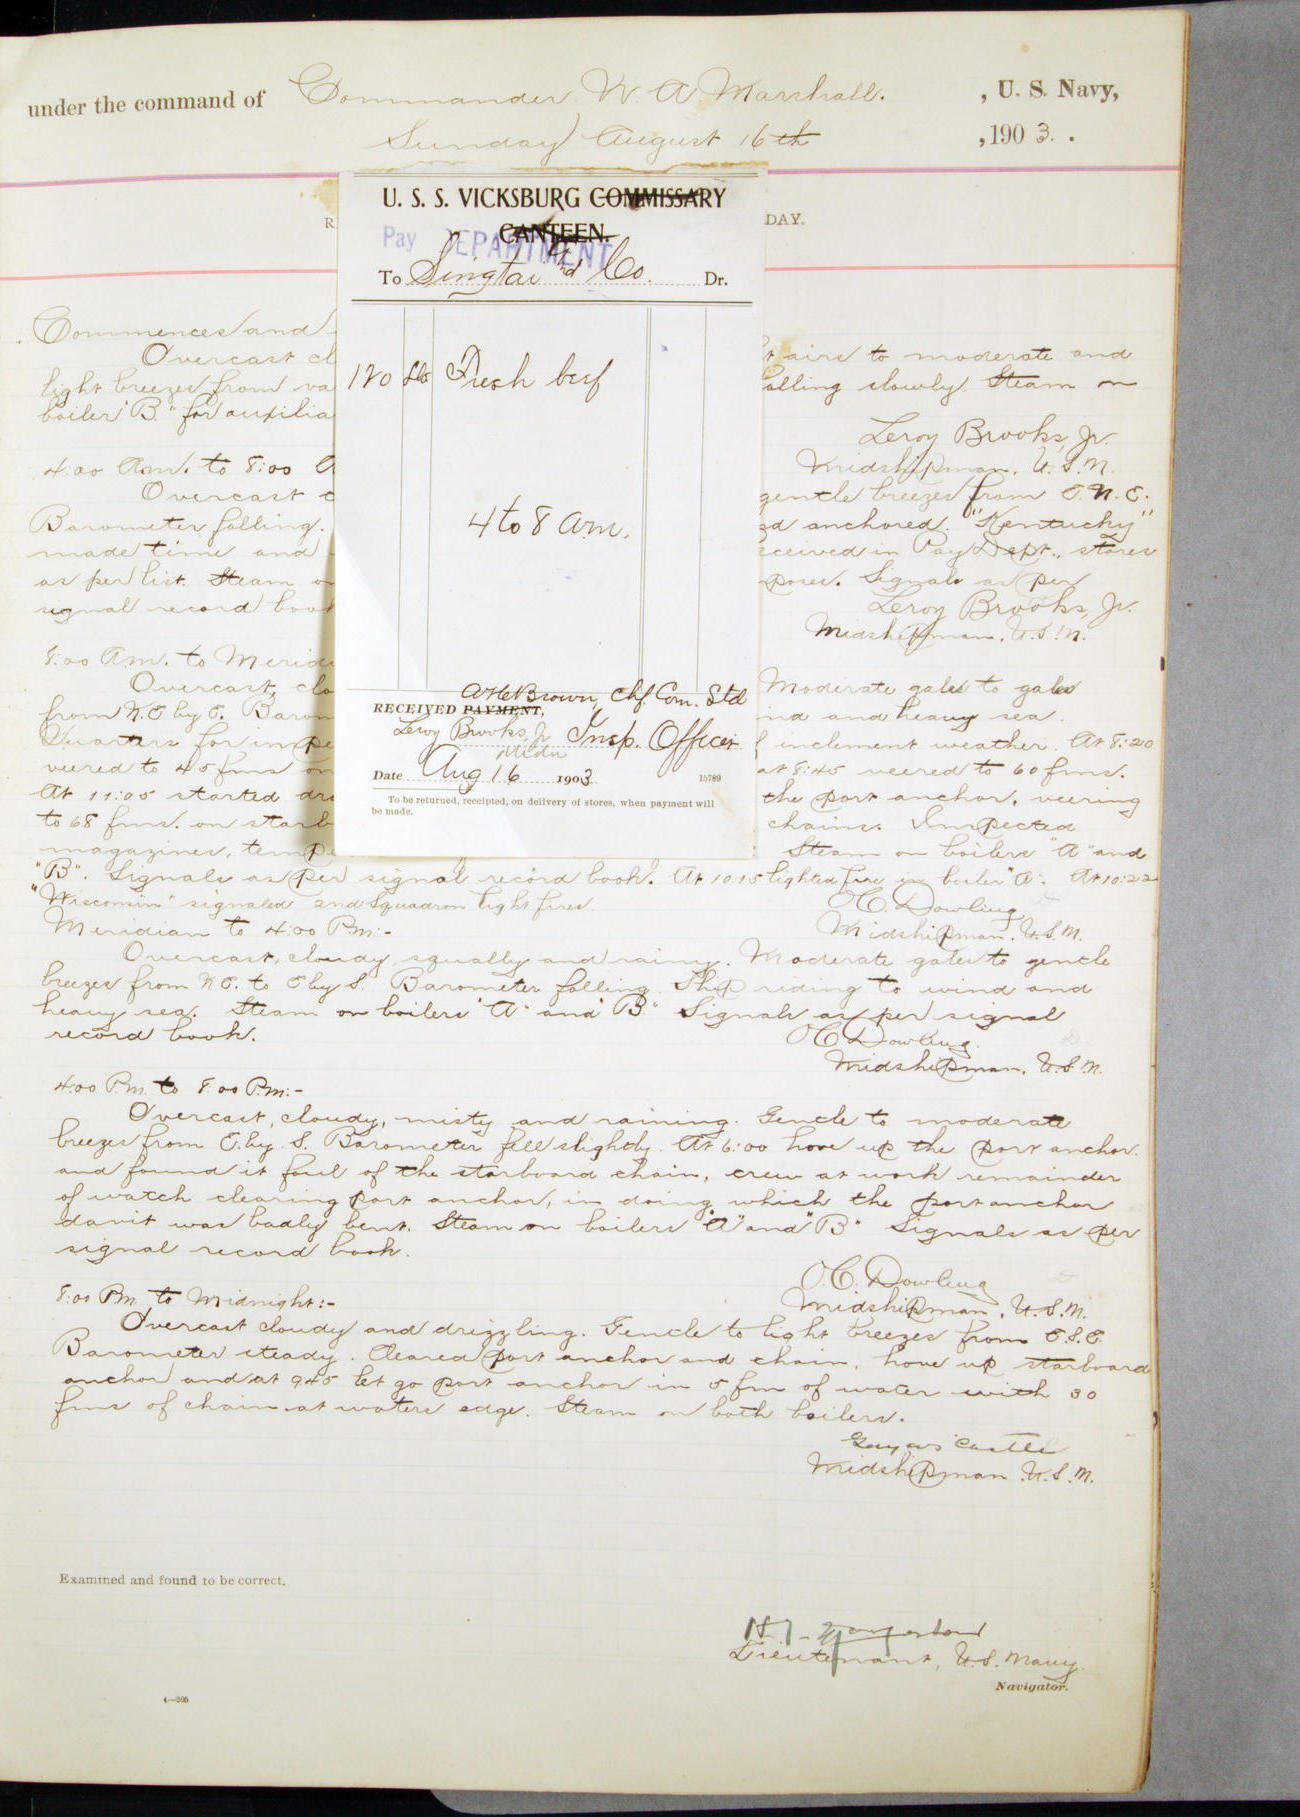 under the command of Commander W. A. Marshall. , U. S. Navy,
Sunday August 16th , 1903.
R
DAY.
U. S. S. VICKSBURG COMMISSARY
CANTEEN.
Pay DEPARTMENT
To Singtai and Co. Dr.
120 lbs Fresh beef
4 to 8 a.m.
Brown, Chf. Com. Std
RECEIVED PAYMENT,
Leroy Brooks, Jr Insp. Officer
Midn
Date Aug 16 1903
15789
To be returned, receipted, on delivery of stores, when payment will
be made.
Commences and
Overcast cl t airs to moderate and
light breezes from va alling slowly. Steam on
boiler "B." for auxilia
Leroy Brooks, Jr.
Midshipman, U.S.N.
4:00 A.m. to 8:00 A
Overcast c gentle breezes from E.N.E.
Barometer falling. d anchored. "Kentucky"
made time and eceived in Pay Dept., stores
as per list. Steam on poses. Signals as per
signal record book
Leroy Brooks, Jr.
Midshipman, U.S.N.
8:00 A.m. to Meridi
Overcast, clo Moderate gales to gales
from N.E by E. Barom nd and heavy sea.
Quarters for inspe f inclement weather. At 8:20
veered to 45 fms on at 8:45 veered to 60 fms.
At 11:05 started dra the port anchor, veering
to 68 fms. on starb chains. Inspected
magazines, temp Steam on boilers "A" and
"B". Signals as per signal record book. At 10.15 lighted fire in boiler "A". At 10:22
"Wisconsin" signaled 2nd Squadron light fires.
O.C. Dowling
Midshipman, U.S.N.
Meridian to 4:00 P.m:-
Overcast, cloudy, squally and rainy. Moderate gales to gentle
breezes from N.E. to E by S. Barometer falling. Ship riding to wind and
heavy sea. Steam on boilers "A" and "B" Signals as per signal
record book.
O C Dowling.
Midshipman, U.S.N.
4:00 P.m. to 8:00 P.m:-
Overcast, cloudy, misty and raining. Gentle to moderate
breezes from E. by S. Barometer fell slightly. At 6:00 hove up the port anchor
and found it foul of the starboard chain, crew at work remainder
of watch clearing port anchor, in doing which the port anchor
davit was badly bent. Steam on boilers "A" and "B" Signals as per
signal record book.
O.C. Dowling
Midshipman, U.S.N.
8:00 P.m. to Midnight:-
Overcast cloudy and drizzling. Gentle to light breezes from E.S.E.
Barometer steady. Cleared port anchor and chain, hove up starboard
anchor and at 9:45 let go port anchor in 5 fm of water with 30
fms of chain at waters edge. Steam on both boilers.
Castle
Midshipman U.S.N.
Examined and found to be correct.
Lieutenant, U.S. Navy
Navigator.
4—205